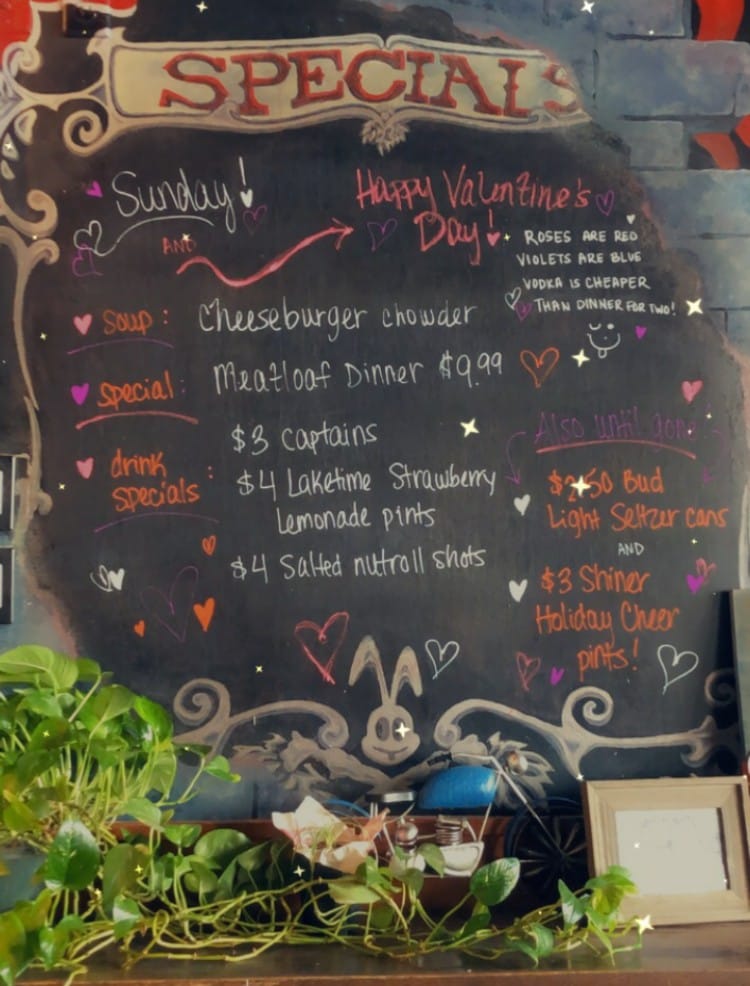 SPECIALS
Sunday!
AND
Happy Valentine's
Day!
ROSES ARE RED
VIOLETS ARE BLUE
VODKA IS CHEAPER
THAN DINNER FOR TWO!
Soup: Cheeseburger chowder
Special: Meatloaf Dinner $9.99
drink
specials:
$3 Captains
$4 Laketime Strawberry
Lemonade pints
$4 Salted nutroll shots
Also until gone
$2.50 Bud
Light Seltzer cans
AND
$3 Shiner
Holiday Cheer
pints!